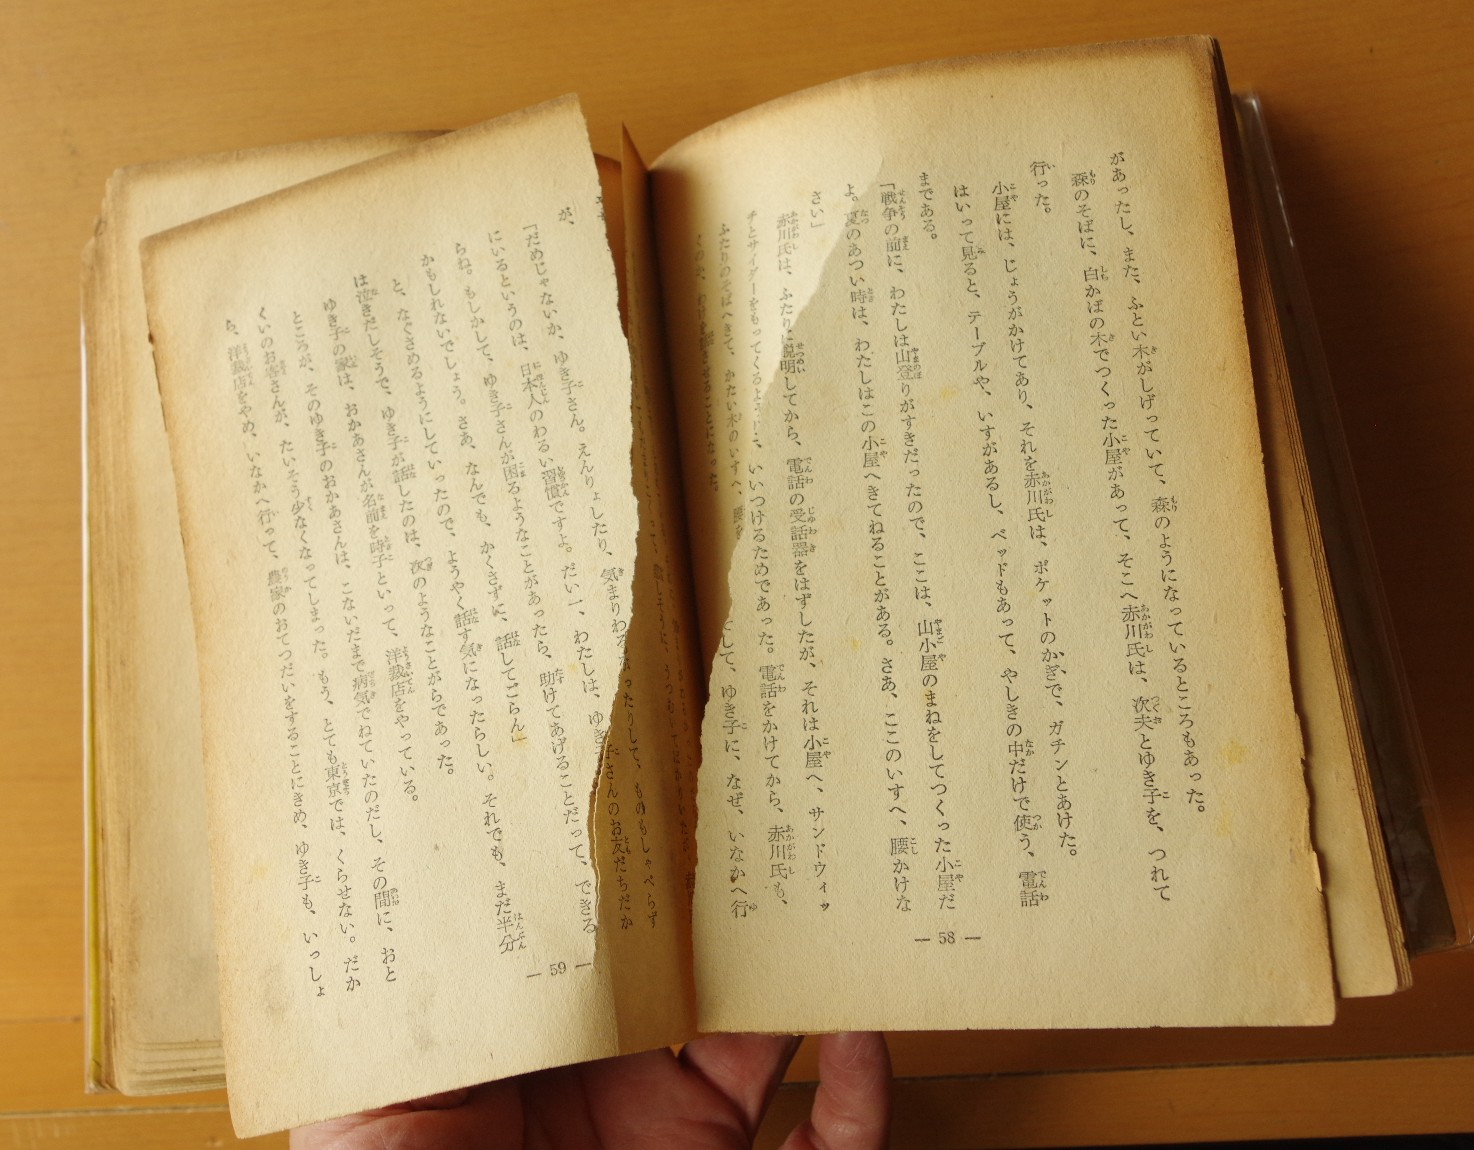 があったし、また、ふとい木がしげっていて、森のようになっているところもあった。
森のそばに、白かばの木でつくった小屋があって、そこへ赤川氏は、次夫とゆき子を、つれて
行った。
小屋には、じょうがかけてあり、それを赤川氏は、ポケットのかぎで、ガチンとあけた。
はいって見ると、テーブルや、いすがあるし、ベッドもあって、やしきの中だけで使う、電話
まである。
「戦争の前に、わたしは山登りがすきだったので、ここは、山小屋のまねをしてつくった小屋だ
よ。夏のあつい時は、わたしはこの小屋へきてねることがある。さあ、ここのいすへ、腰かけな
さい」
赤川氏は、ふたりに説明してから、電話の受話器をはずしたが、それは小屋へ、サンドウィッ
チとサイダーをもってくるように、いいつけるためであった。電話をかけてから、赤川氏も、
ふたりのそばへきて、かたい木のいすへ、腰を
して、ゆき子に、なぜ、いなかへ行
くのか、わけを話させることになった。
— 58 —
が、
気まりわる
ったりして、ものもしゃべらず
「だめじゃないか、ゆき子さん。えんりょしたり、
ゆき子さんのお友だちだか
にいるというのは、日本人のわるい習慣ですよ。だい一、わたしは、
らね。もしかして、ゆき子さんが困るようなことがあったら、助けてあげることだって、できる
かもしれないでしょう。さあ、なんでも、かくさずに、話してごらん」
と、なぐさめるようにしていったので、ようやく話す気になったらしい。それでも、まだ半分
は泣きだしそうで、ゆき子が話したのは、次のようなことがらであった。
ゆき子の家は、おかあさんが名前を時子といって、洋裁店をやっている。
ところが、そのゆき子のおかあさんは、こないだまで病気でねていたのだし、その間に、おと
くいのお客さんが、たいそう少なくなってしまった。もう、とても東京では、くらせない。だか
ら、洋裁店をやめ、いなかへ行って、農家のおてつだいをすることにきめ、ゆき子も、いっしょ
— 59 —